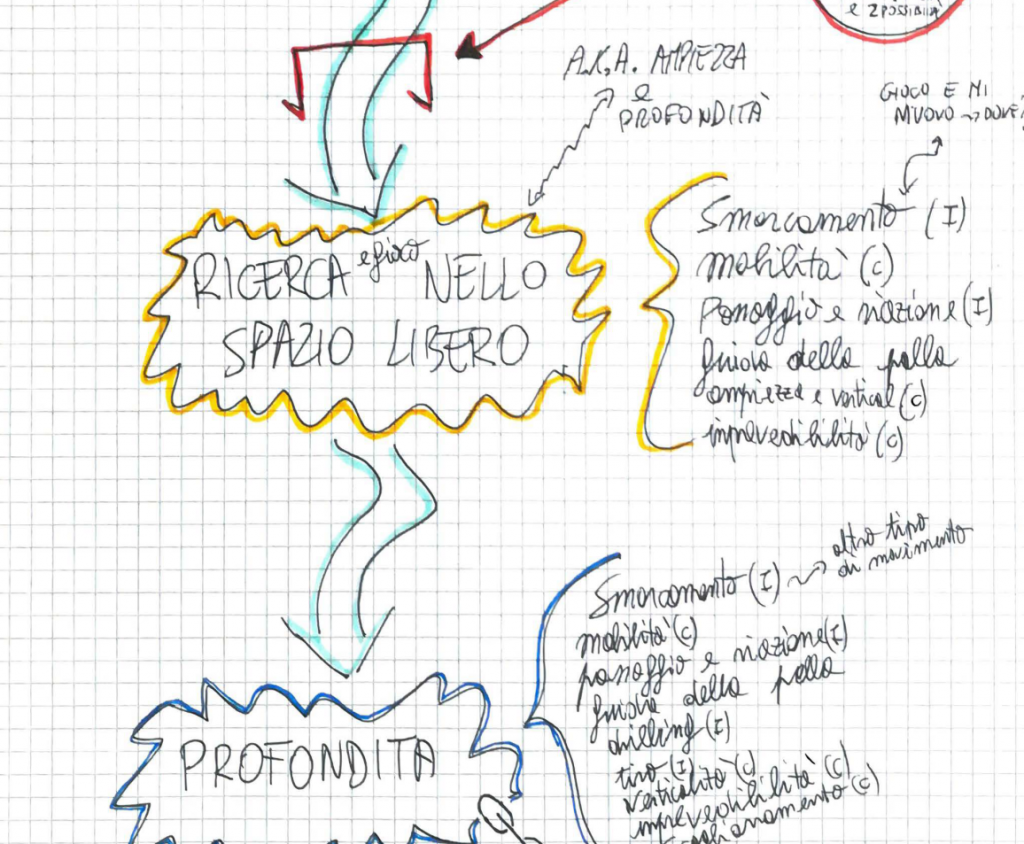 e 2 POSSIBILITÀ
A.K.A. AMPIEZZA
e
PROFONDITÀ
GIOCO E MI
MUOVO → DOVE?
Smarcamento (I)
mobilità (C)
passaggio e ricezione (I)
guida della palla
ampiezza e vertical (C)
imprevedibilità (C)
RICERCA e gioco NELLO
SPAZIO LIBERO
altro tipo
di movimento
Smarcamento (I)
mobilità (C)
passaggio e ricezione (I)
guida della palla
dribling (I)
tiro (I)
verticalità (C)
imprevedibilità (C)
(C)
PROFONDITÀ